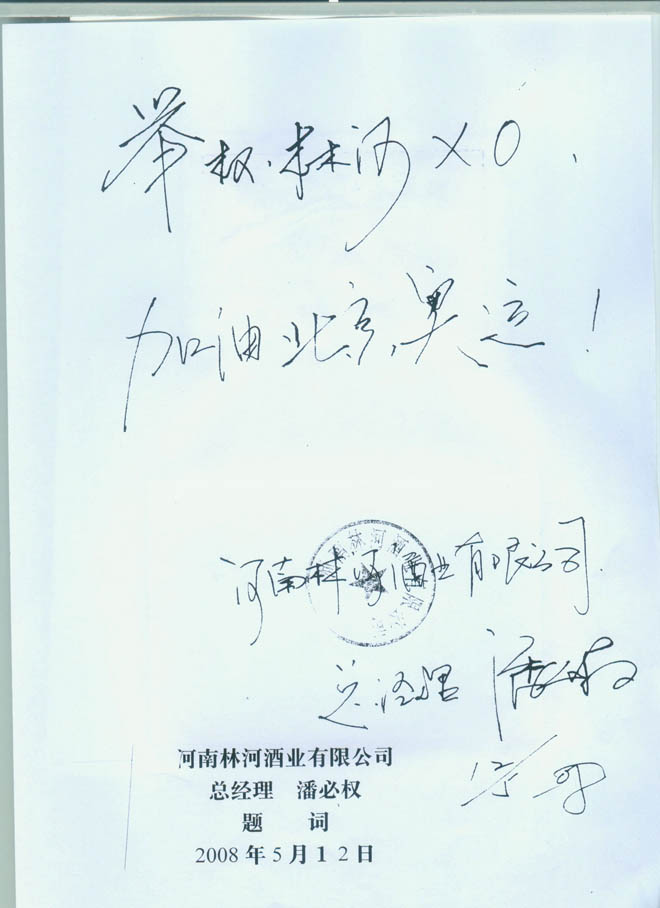 举杯林河XO、
加油北京奥运！
河南林河酒业有限公司
总经理 潘必权
12/5 08
河南林河酒业有限公司
总经理 潘必权
题 词
2008年5月12日